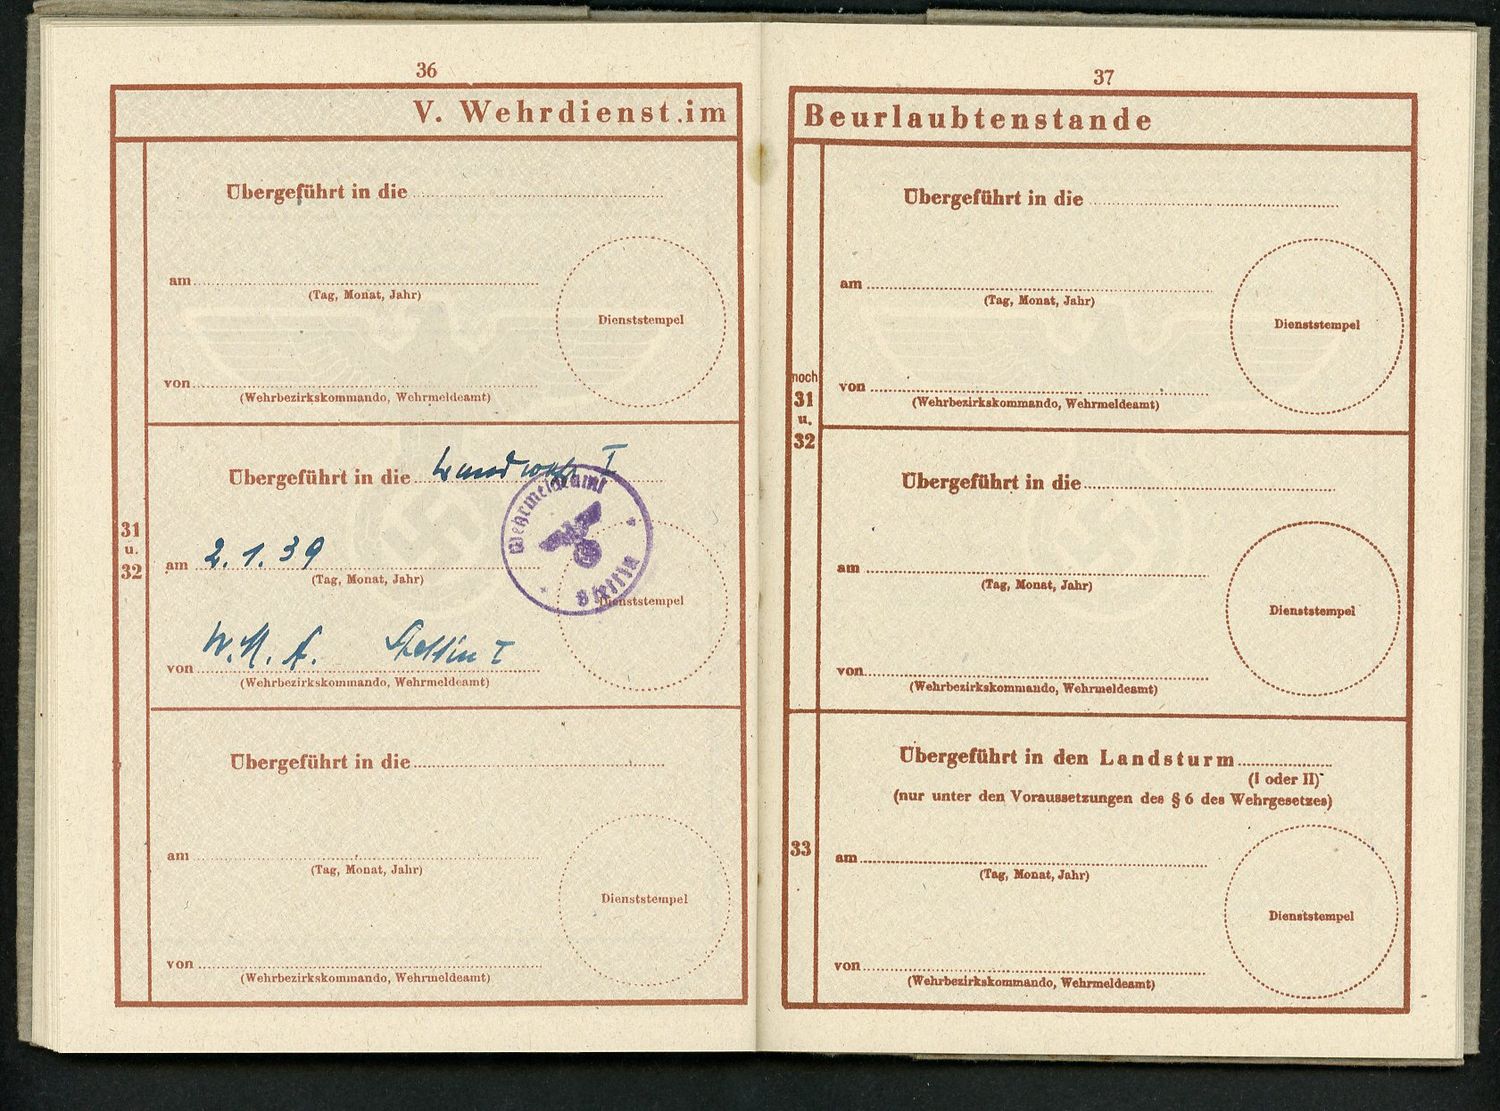 36
V. Wehrdienst im
Übergeführt in die
am
(Tag, Monat, Jahr)
Dienststempel
von
(Wehrbezirkskommando, Wehrmeldeamt)
31
u.
32
Übergeführt in die Landwehr I
Wehrmeldeamt
Stettin
am 2.1.39
(Tag, Monat, Jahr)
Dienststempel
von W.M.A. Stettin I
(Wehrbezirkskommando, Wehrmeldeamt)
Übergeführt in die
am
(Tag, Monat, Jahr)
Dienststempel
von
(Wehrbezirkskommando, Wehrmeldeamt)
37
Beurlaubtenstande
Übergeführt in die
am
(Tag, Monat, Jahr)
Dienststempel
von
(Wehrbezirkskommando, Wehrmeldeamt)
noch
31
u.
32
Übergeführt in die
am
(Tag, Monat, Jahr)
Dienststempel
von
(Wehrbezirkskommando, Wehrmeldeamt)
33
Übergeführt in den Landsturm
(I oder II)
(nur unter den Voraussetzungen des § 6 des Wehrgesetzes)
am
(Tag, Monat, Jahr)
Dienststempel
von
(Wehrbezirkskommando, Wehrmeldeamt)